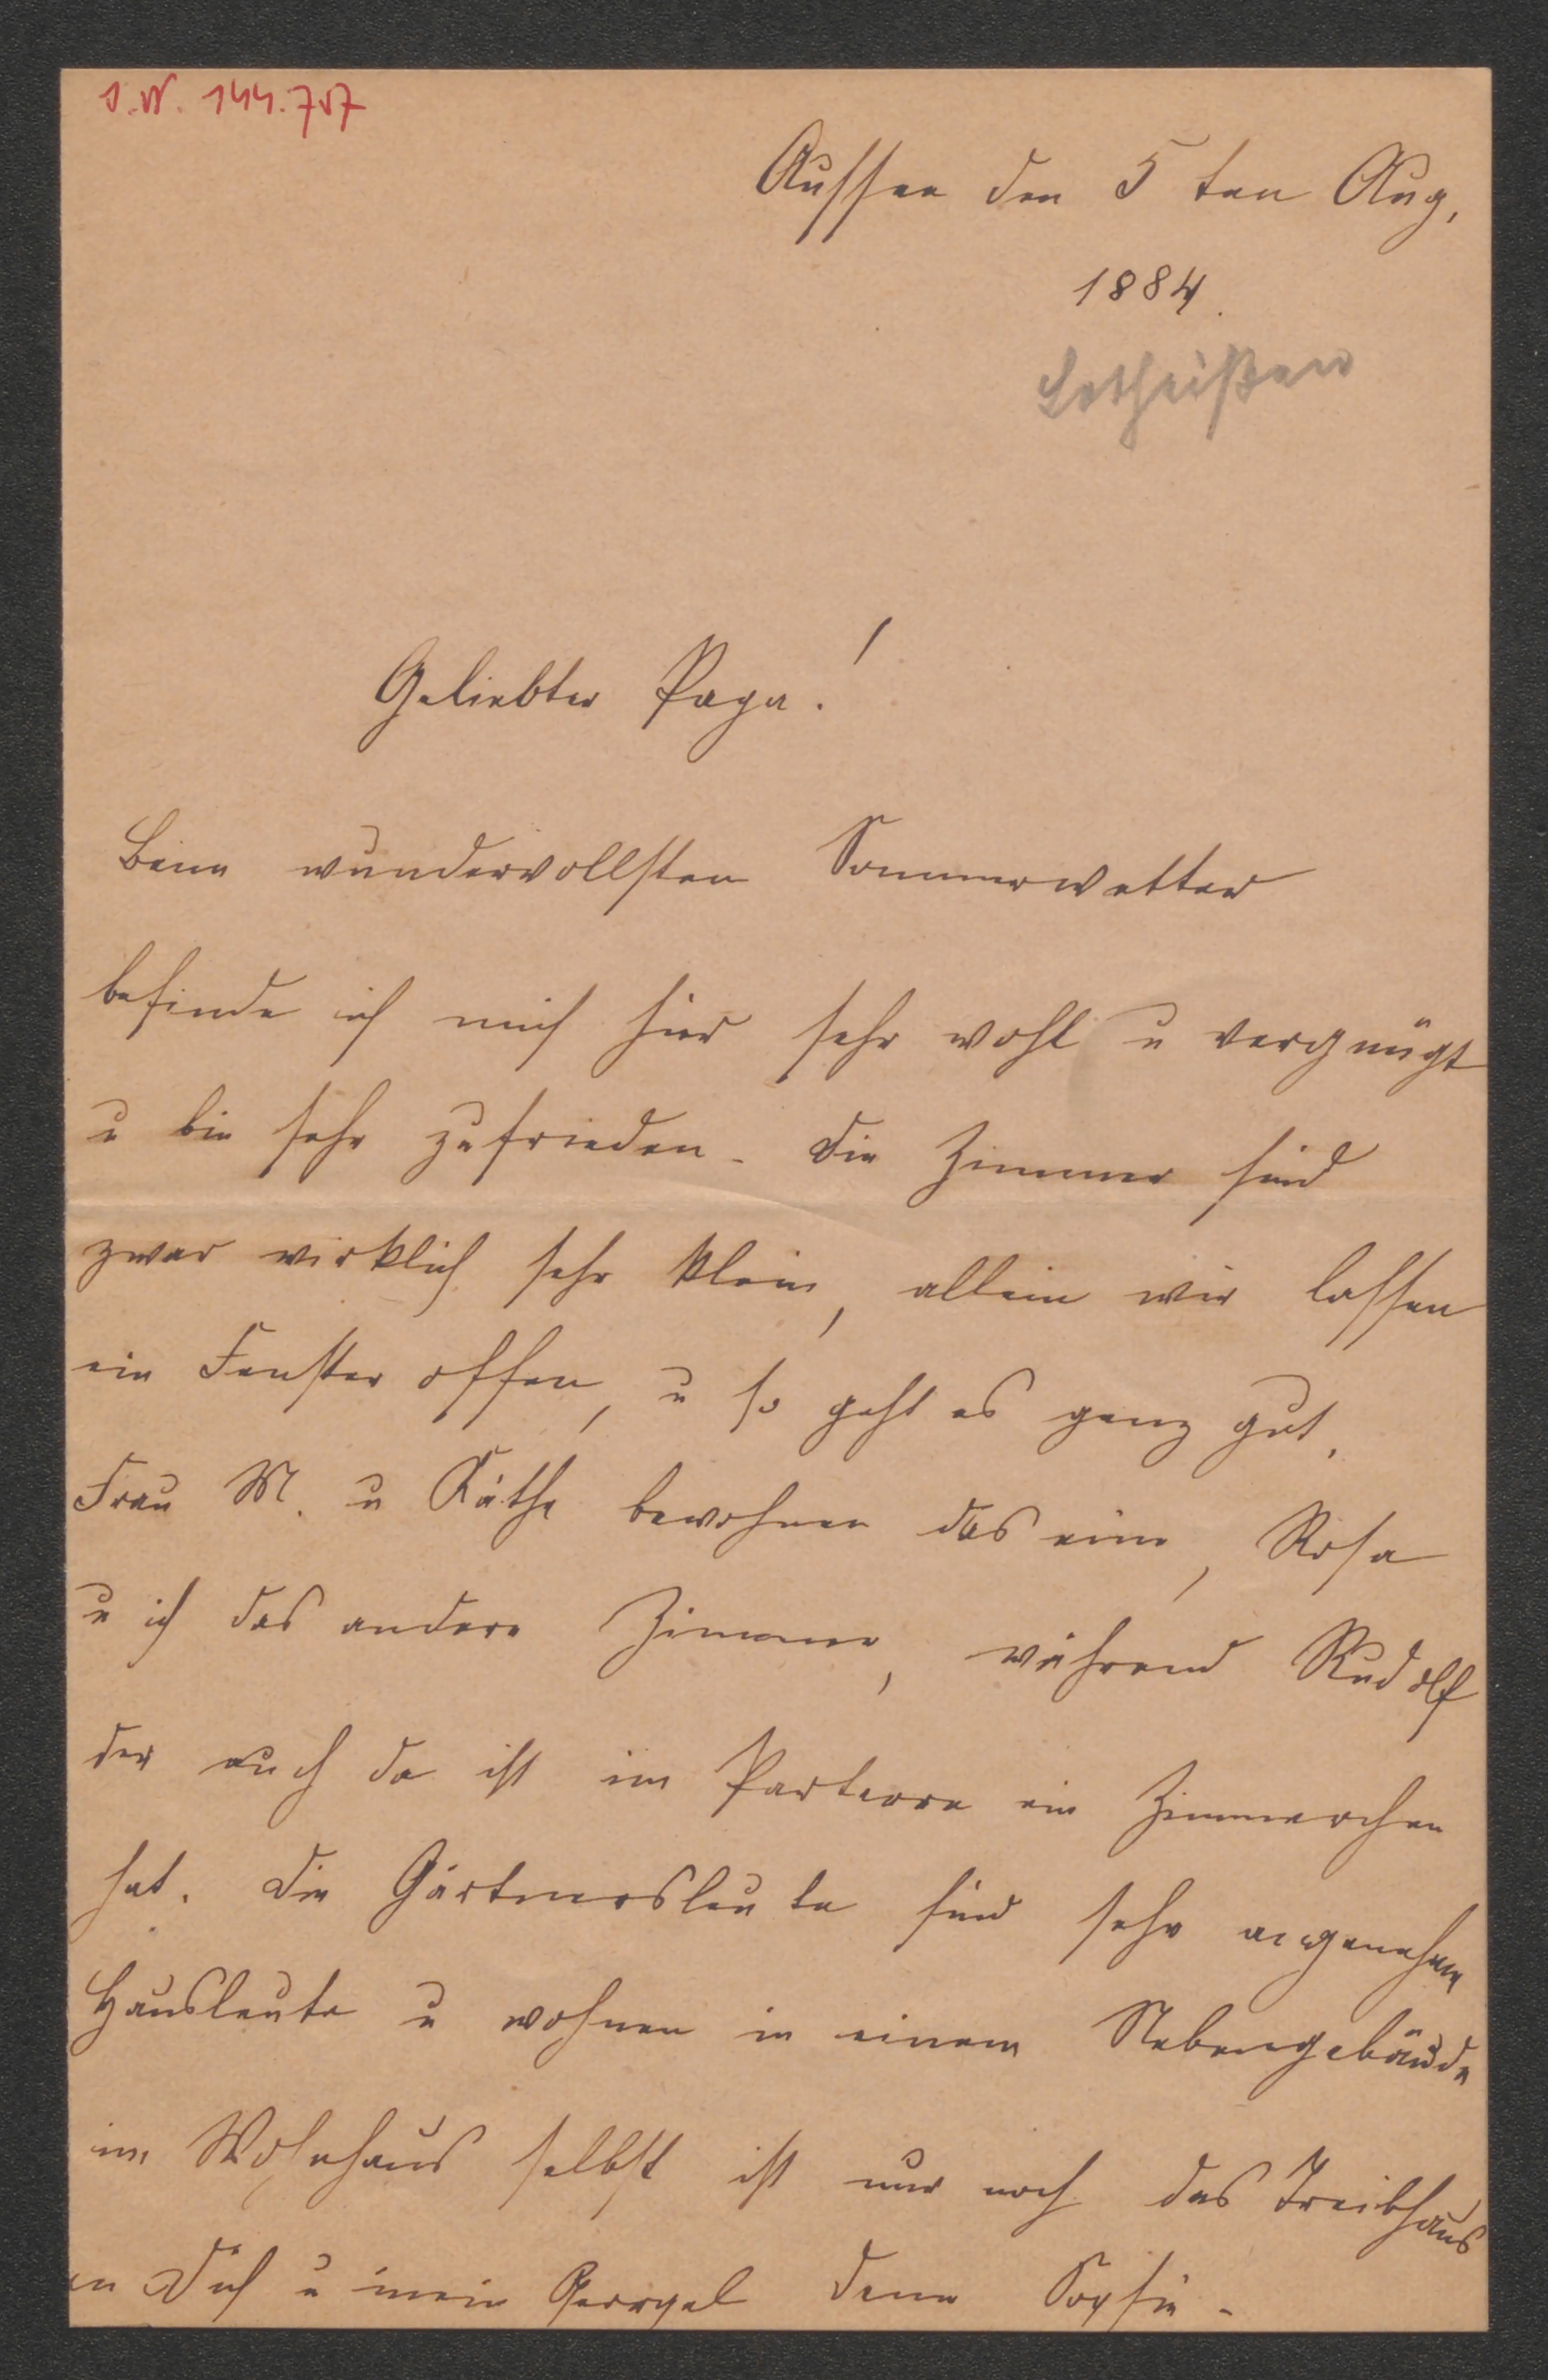 I.N. 144.757
Aussee den 5 ten Aug.
1884.
Lotheißen
Geliebter Papa!
Beim wundervollsten Sommerwetter
befinde ich mich hier sehr wohl u vergnügt
u bin sehr zufrieden. Die Zimmer sind
zwar wirklich sehr klein, allein wir lassen
ein Fenster offen, u so geht es ganz gut.
Frau M. u Käthe bewohnen das eine, Rosa
u ich das andere Zimmer, während Rudolf
der auch da ist im Parterre ein Zimmerchen
hat. Die Gärtnersleute sind sehr angenehme
Hausleute u wohnen in einem Nebengebäude
im Wohnhaus selbst ist nur noch das Treibhaus
an Dich u mein Deine Sophie.